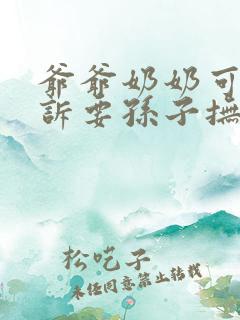 爺爺奶奶可
訴要孫子撫
松吃子
未经同意禁止转载